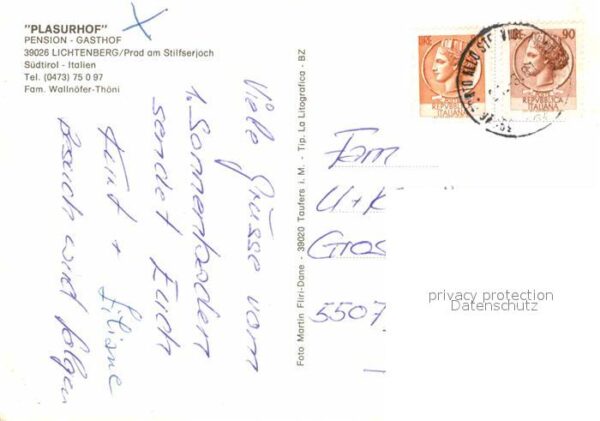 "PLASURHOF"
PENSION - GASTHOF
39026 LICHTENBERG/Prad am Stilfserjoch
Südtirol - Italien
Tel. (0473) 75 0 97
Fam. Wallnöfer-Thöni
Viele Grüsse vom
1. Sonnenbaden
sendet Euch
+ Liliane
Besuch wird folgen
Foto Martin Fliri-Dane - 39020 Taufers i. M. - Tip. La Litografica - BZ
LIRE
REPVBBLICA
ITALIANA
90
REPVBBLICA
ITALIANA
Fam
U+K
Gros
5507
privacy protection
Datenschutz